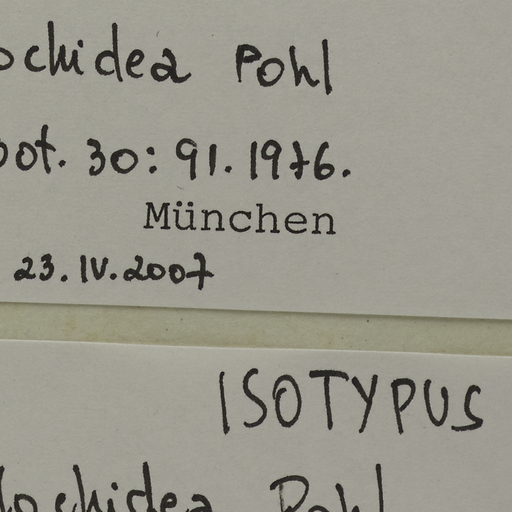 ochidea Pohl
bot. 30: 91. 1976.
München
23. IV. 2007
ISOTYPUS
lochidea Pohl